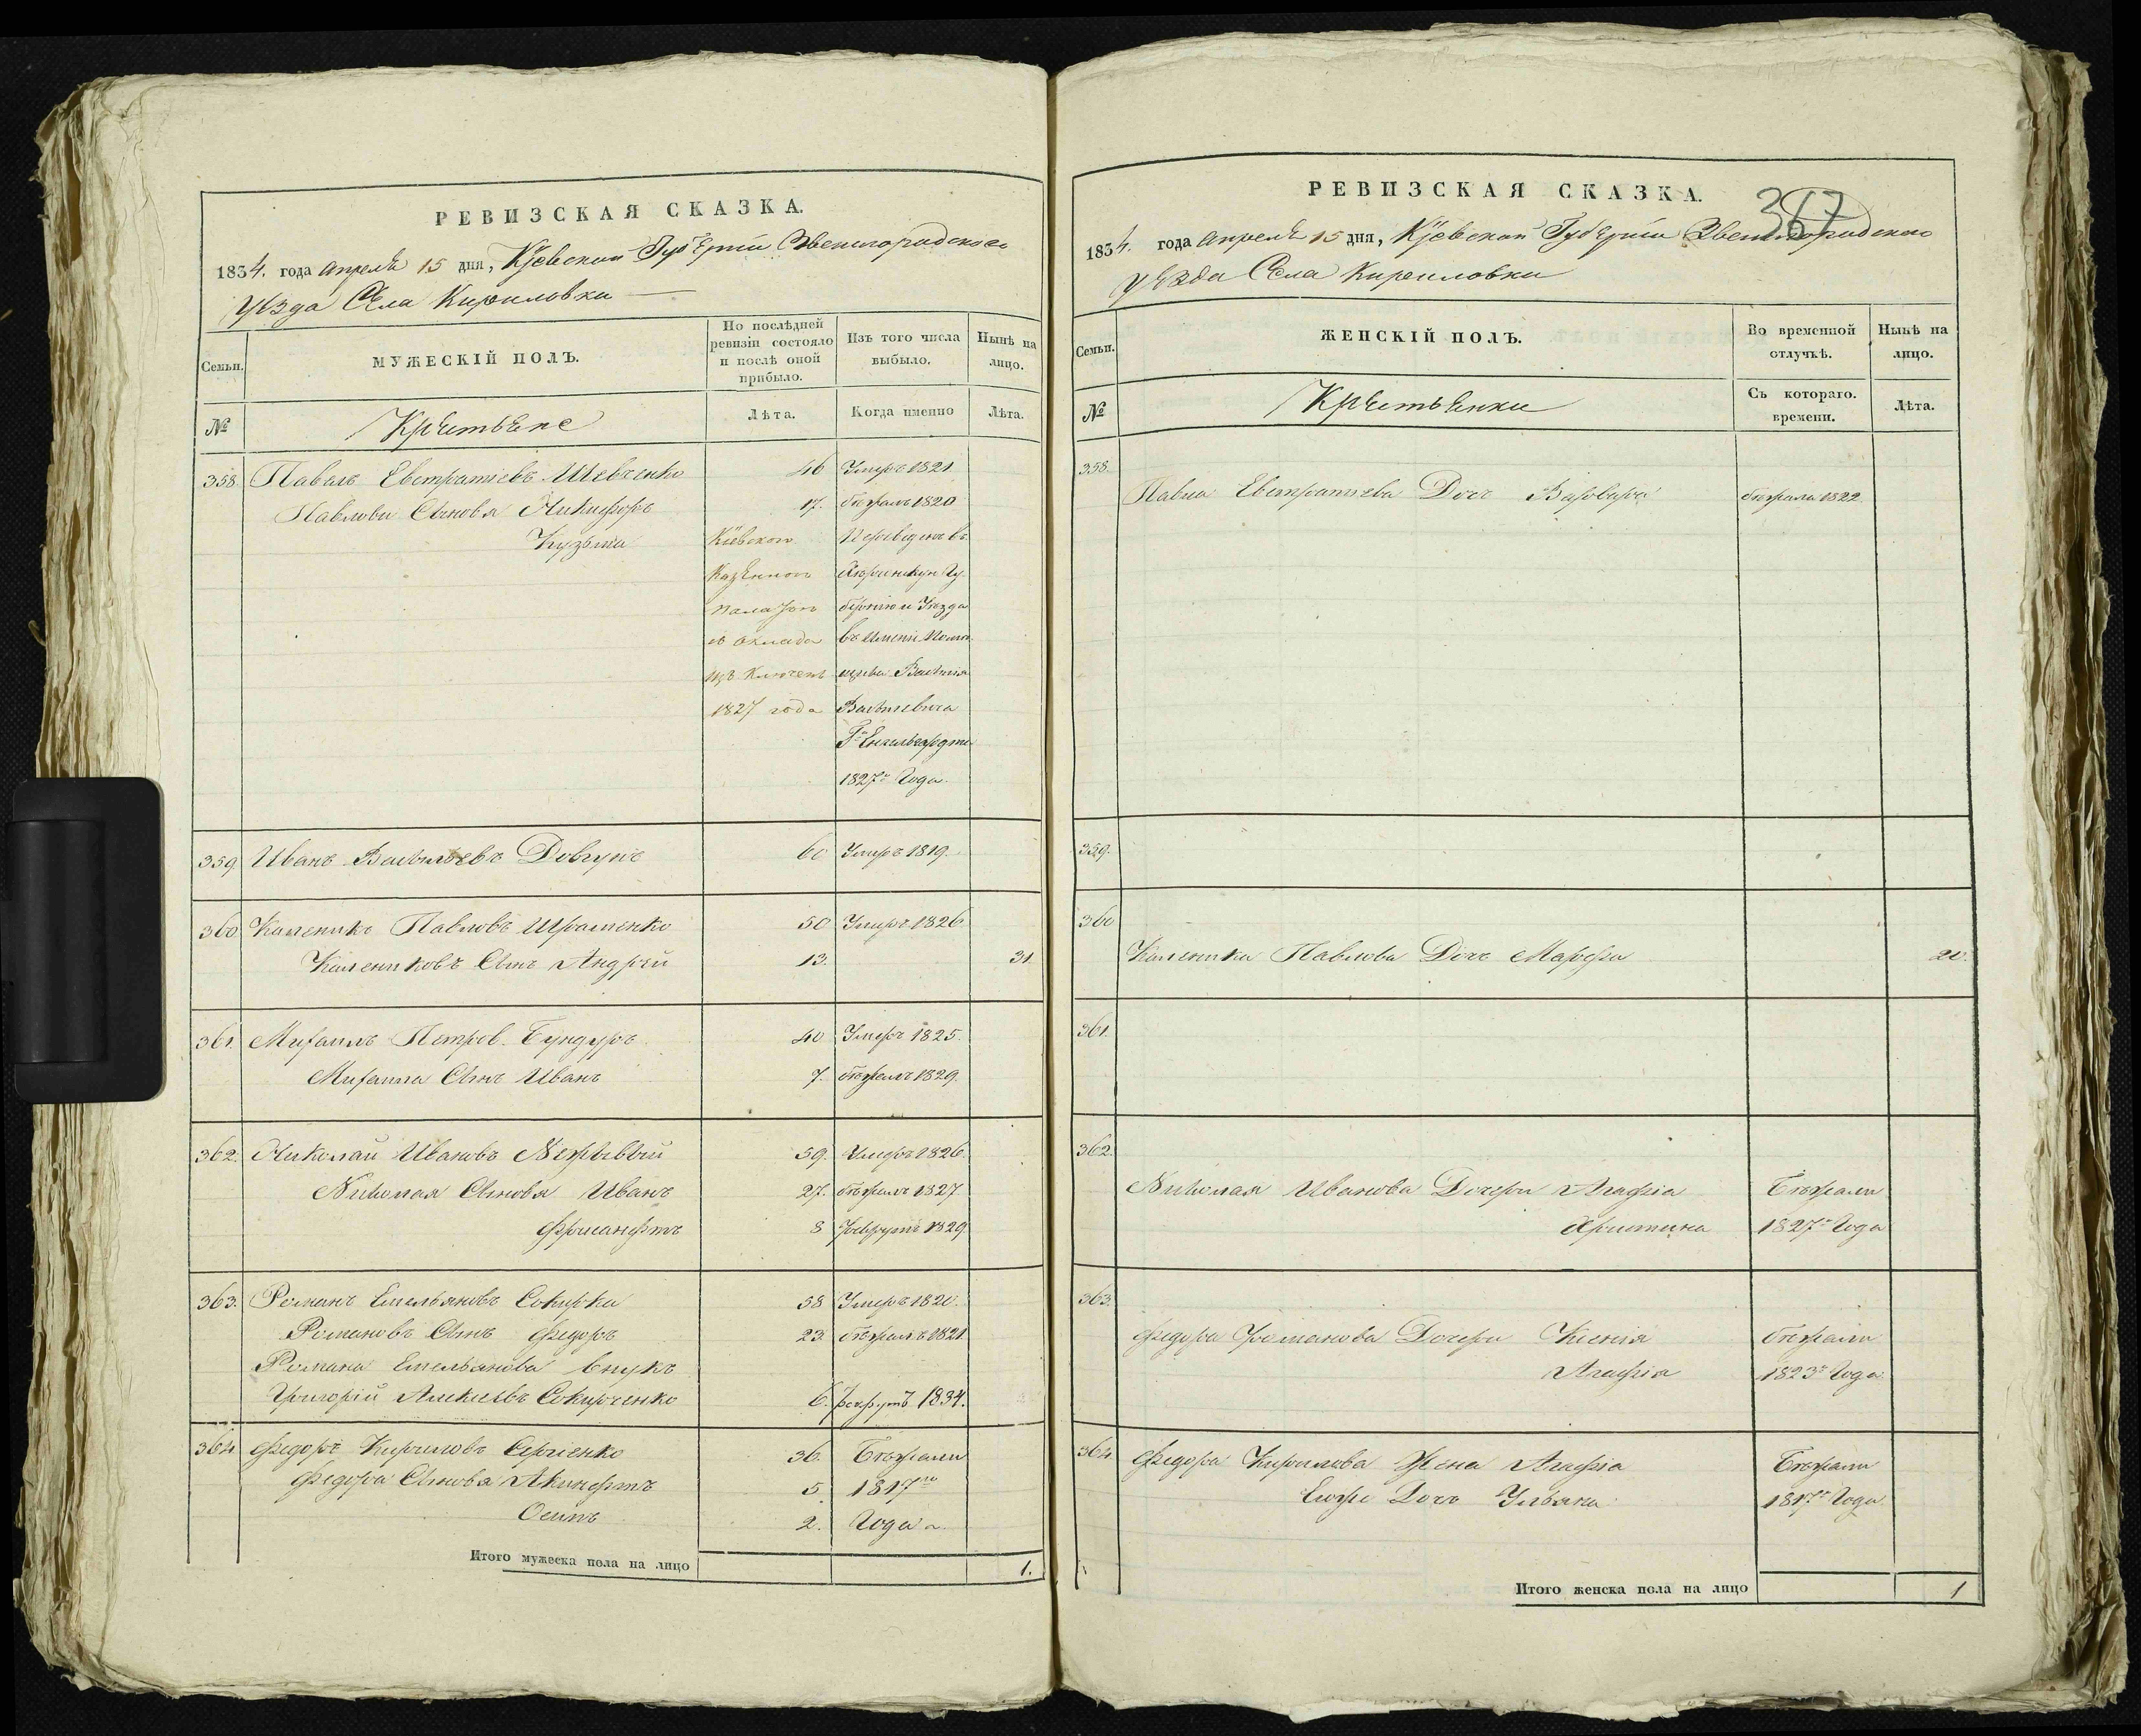 РЕВИЗСКАЯ СКАЗКА.
1834. года апреля 15 дня, Кіевской Губерніи Звенигородского
уѣзда Села Кириловки
Семьи.
МУЖЕСКІЙ ПОЛЪ.
По послѣдней ревизіи состояло и послѣ оной прибыло.
Изъ того числа выбыло.
Нынѣ на лицо.
№
Крестьяне
Лѣта.
Когда именно
Лѣта.
358. Павелъ Евстратіевъ Шевченко 46 Умеръ 1821
Павлови Сыновя Никифоръ 17. бѣжалъ 1820
Кузьма Кіевскою Переведенъ въ
Казенною Гу
палатою берніи и Уезда
съ оклада въ имении Поме
изключенъ щика Василия
1827 года Васильевича
Г. Енгельгардта
1827го Года
359. Иванъ Васильевъ Довгунъ 60 Умеръ 1819.
360. Каленикъ Павловъ Шраменко 50 Умеръ 1826
Калениковъ Сынъ Андрей 13. 31
361. Михаилъ Петров Бундуръ 40 Умеръ 1825.
Михаила Сынъ Иванъ 7. бѣжалъ 1829.
362. Николай Ивановъ Неживый 59. Умеръ 1826.
Николая Сыновя Иванъ 27. бѣжалъ 1827
8 рекрутъ 1829
363. Романъ Емельяновъ Сокирка 58 Умеръ 1820.
Романовъ Сынъ Федоръ 23 бѣжалъ 1821
Романа Емельянова внукъ
Григорій Алексѣевъ Сокирченко 6. рекрутъ 1834.
364 Федоръ Кириловъ Сергіенко 36. Бѣжали
Федора Сыновя Акинфтъ 5. 1817го
Осипъ 2. Года
Итого мужеска пола на лицо 1.
РЕВИЗСКАЯ СКАЗКА.
367
1834. года апреля 15 дня, Кіевской Губерніи Звенигородского
уѣзда Села Кириловки
Семьи.
ЖЕНСКІЙ ПОЛЪ.
Во временной отлучкѣ.
Нынѣ на лицо.
№
Крестьянки
Съ котораго. времени.
Лѣта.
358.
Павла Евстратиева Дочъ Варвара бѣжала 1822
359.
360
Каленика Павлова Дочъ Марфа 20.
361.
362.
Николая Иванова Дочери Агафіа Бѣжали
Христина 1827го Года
363.
Федора Романова Дочери Ксенія бѣжали
Агафіа 1823го Года
364. Федора Кирилова Жена Агафіа Бѣжали
Егоже Дочъ Ульяна 1817го Года
Итого женска пола на лицо 1